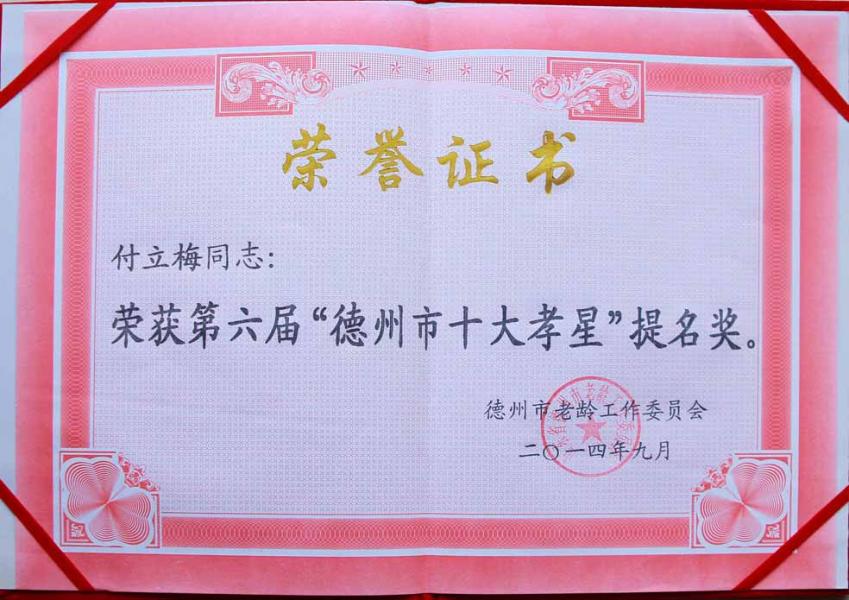 荣誉证书
付立梅同志：
荣获第六届“德州市十大孝星”提名奖。
德州市老龄工作委员会
二〇一四年九月